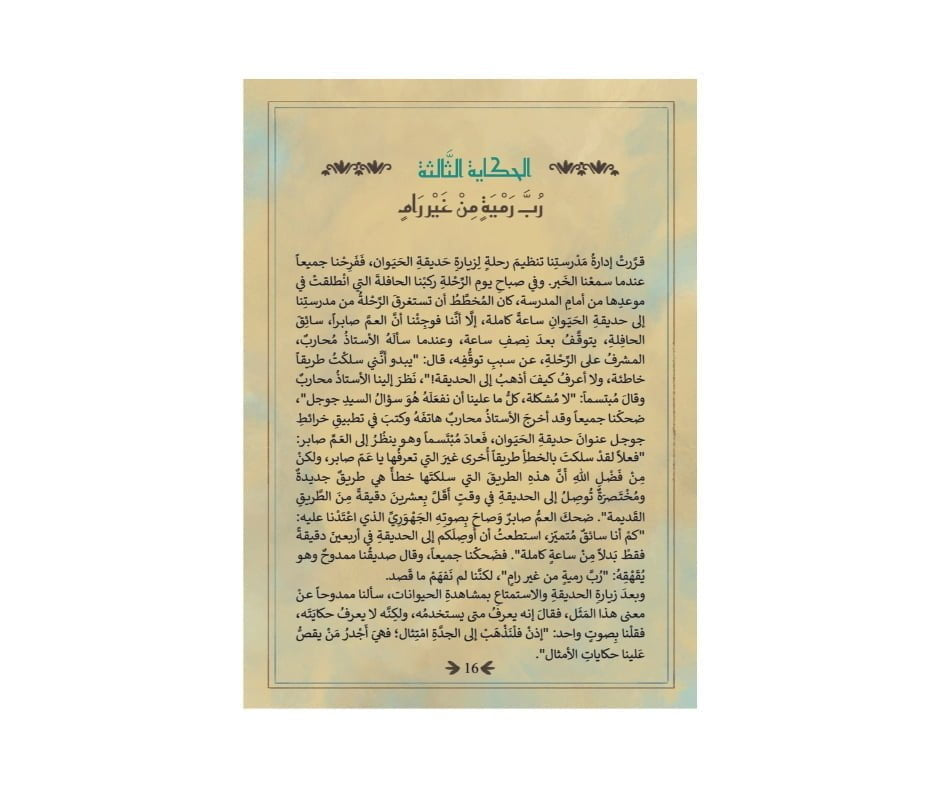 الحكاية الثَّالثة
رُبَّ رَمْيَةٍ مِنْ غَيْرِ رَامٍ
قرَّرتْ إدارةُ مَدْرستِنا تنظيمَ رحلةٍ لِزيارةِ حَديقةِ الحَيَوان، فَفَرِحْنا جميعاً
عندما سمعْنا الخَبر. وفي صباحِ يومِ الرِّحْلةِ ركبْنا الحافلةَ التي انْطلقتْ في
موعدِها من أمامِ المدرسة، كان المُخطَّطُ أن تستغرقَ الرِّحْلةُ من مدرستِنا
إلى حديقةِ الحَيَوانِ ساعةً كاملة، إلَّا أنَّنا فوجِئْنا أنَّ العمَّ صابراً، سائِقَ
الحافِلةِ، يتوقَّفُ بعدَ نِصفِ ساعة، وعندما سألَهُ الأستاذُ مُحاربٌ،
المشرفُ على الرِّحْلةِ، عن سببِ توقُّفِه، قال: "يبدو أنَّني سلكْتُ طريقاً
خاطئة، ولا أعرفُ كيفَ أذهبُ إلى الحديقة!"، نَظرَ إلينا الأستاذُ محاربٌ
وقالَ مُبتسماً: "لا مُشكلة، كلُّ ما علينا أن نفعَلَهُ هُوَ سؤالُ السيدِ جوجل"،
ضحكْنا جميعاً وقد أخرجَ الأستاذُ محاربٌ هاتفَهُ وكتبَ في تطبيقِ خرائطِ
جوجل عنوانَ حديقةِ الحَيَوان، فَعادَ مُبْتَسماً وهو ينظُرُ إلى العَمِّ صابر:
"فعلاً لقدْ سلكتَ بالخطأِ طريقاً أُخرى غيرَ التي تعرفُها يا عَمّ صابر، ولكنْ
مِنْ فَضْلِ اللهِ أنَّ هذهِ الطريقَ التي سلكتَها خطأً هي طريقٌ جديدةٌ
ومُخْتَصرَةٌ تُوصِلُ إلى الحديقةِ في وقتٍ أقلَّ بِعشرينَ دقيقةً مِنَ الطَّريقِ
القَديمة". ضحكَ العمُّ صابرٌ وَصاحَ بِصوتِهِ الجَهْوَرِيِّ الذي اعْتَدْنا عليه:
"كمْ أنا سائقٌ مُتميّز، استطعتُ أن أُوصِلَكم إلى الحديقةِ في أربعينَ دقيقةً
فقطْ بَدلاً مِنْ ساعةٍ كاملة". فضَحكْنا جميعاً، وقال صديقُنا ممدوحٌ وهو
يُقَهْقِهُ: "رُبَّ رميةٍ من غير رامٍ"، لكنَّنا لم نَفهَمْ ما قَصد.
وبعدَ زيارةِ الحديقةِ والاستمتاعِ بمشاهدةِ الحيوانات، سألنا ممدوحاً عنْ
معنى هذا المَثَل، فقالَ إنه يعرفُ متى يستخدمُه، ولكِنَّه لا يعرفُ حكايَتَه،
فقلْنا بِصوتٍ واحد: "إذنْ فَلْنَذْهَبْ إلى الجدَّةِ امْتِثال؛ فهيَ أجْدرُ مَنْ يقصُّ
عَلينا حكاياتِ الأمثال".
16